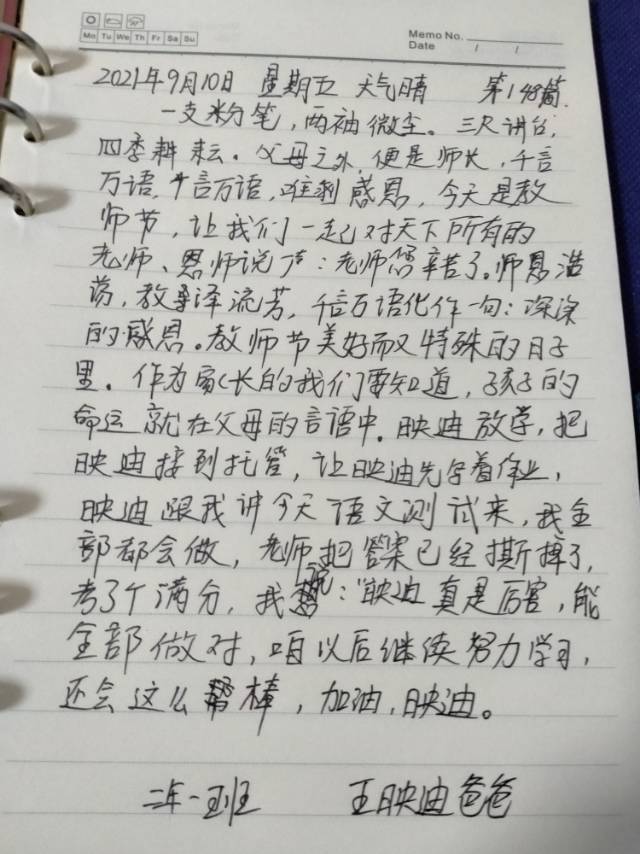 Mo Tu We Th Fr Sa Su
Memo No.
Date / /
2021年9月10日 星期五 天气晴 第148篇
一支粉笔，两袖微尘。三尺讲台，
四季耕耘。父母之外，便是师长，千言
万语，千言万语，难剩感恩，今天是教
师节，让我们一起对天下所有的
老师、恩师说声：老师您辛苦了。师恩浩
荡，教泽流芳，千言万语化作一句：深深
的感恩。教师节美好而又特殊的日子
里。作为家长的我们要知道，孩子的
命运就在父母的言语中。映迪放学，把
映迪接到托管，让映迪先写着作业，
映迪跟我讲今天语文测试来，我全
部都会做，老师把答案已经撕掉了，
考了个满分，我说：“映迪真是厉害，能
全部做对，咱以后继续努力学习，
还会这么棒，加油，映迪。
二年一班 王映迪爸爸